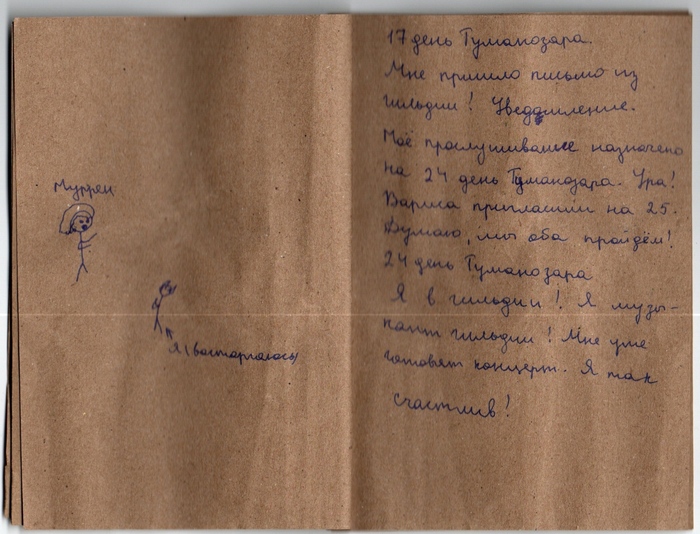 Муррен
Я (восторгаюсь)
17 день Туманозара.
Мне пришло письмо из
гильдии! Уведомление.
Моё прослушивание назначено
на 24 день Туманозара. Ура!
Вариса пригласили на 25.
Думаю, мы оба пройдём!
24 день Туманозара
Я в гильдии! Я музы-
кант гильдии! Мне уже
готовят концерт. Я так
счастлив!